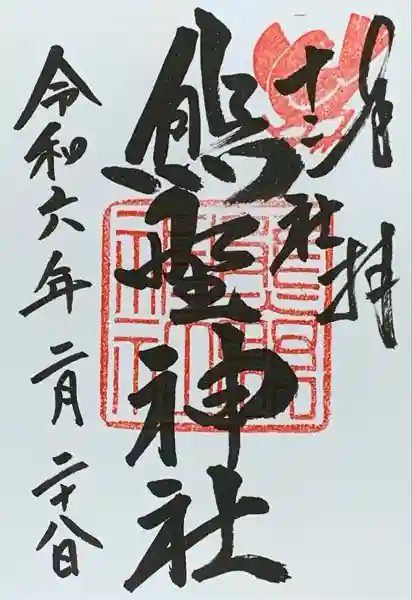 奉拝
十二社
熊野神社
令和六年二月二十八日